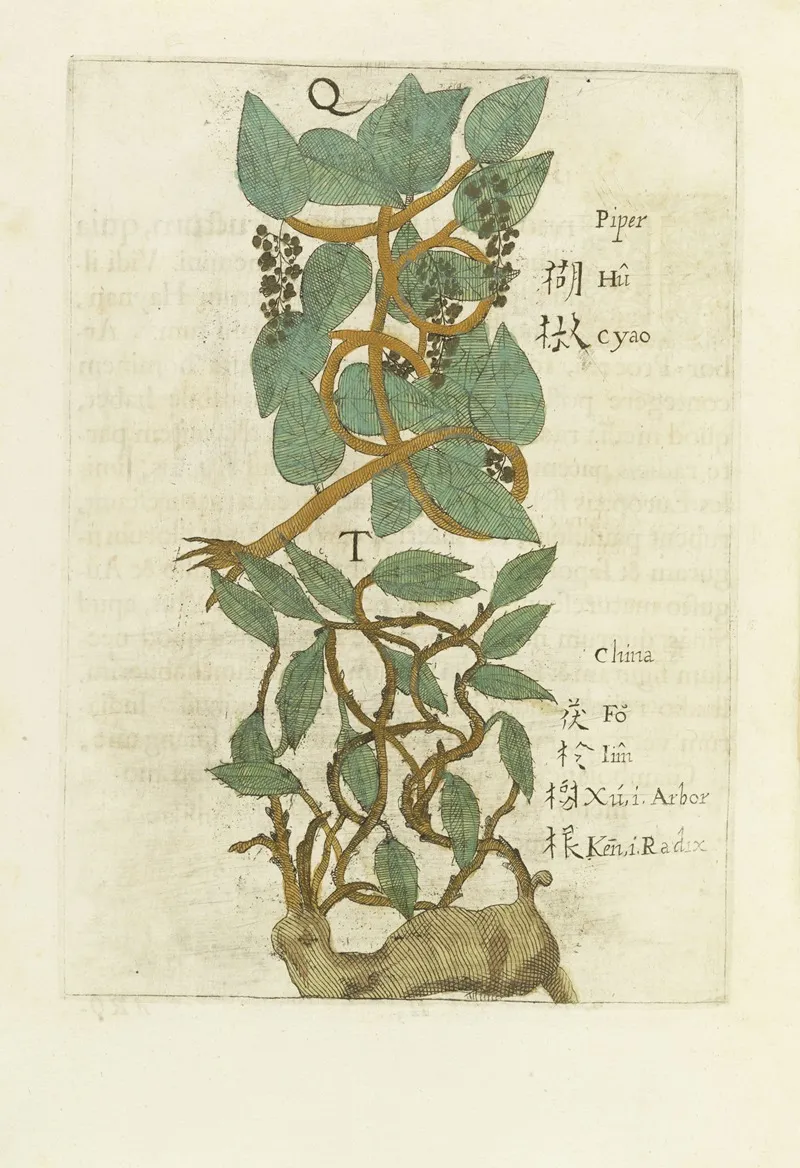 Q
Piper
楜 Hû
椒 cyao
T
China
茯 Fŏ
柃 lim̂
樹 Xú, i. Arbor
根 Kēn, i. Radix